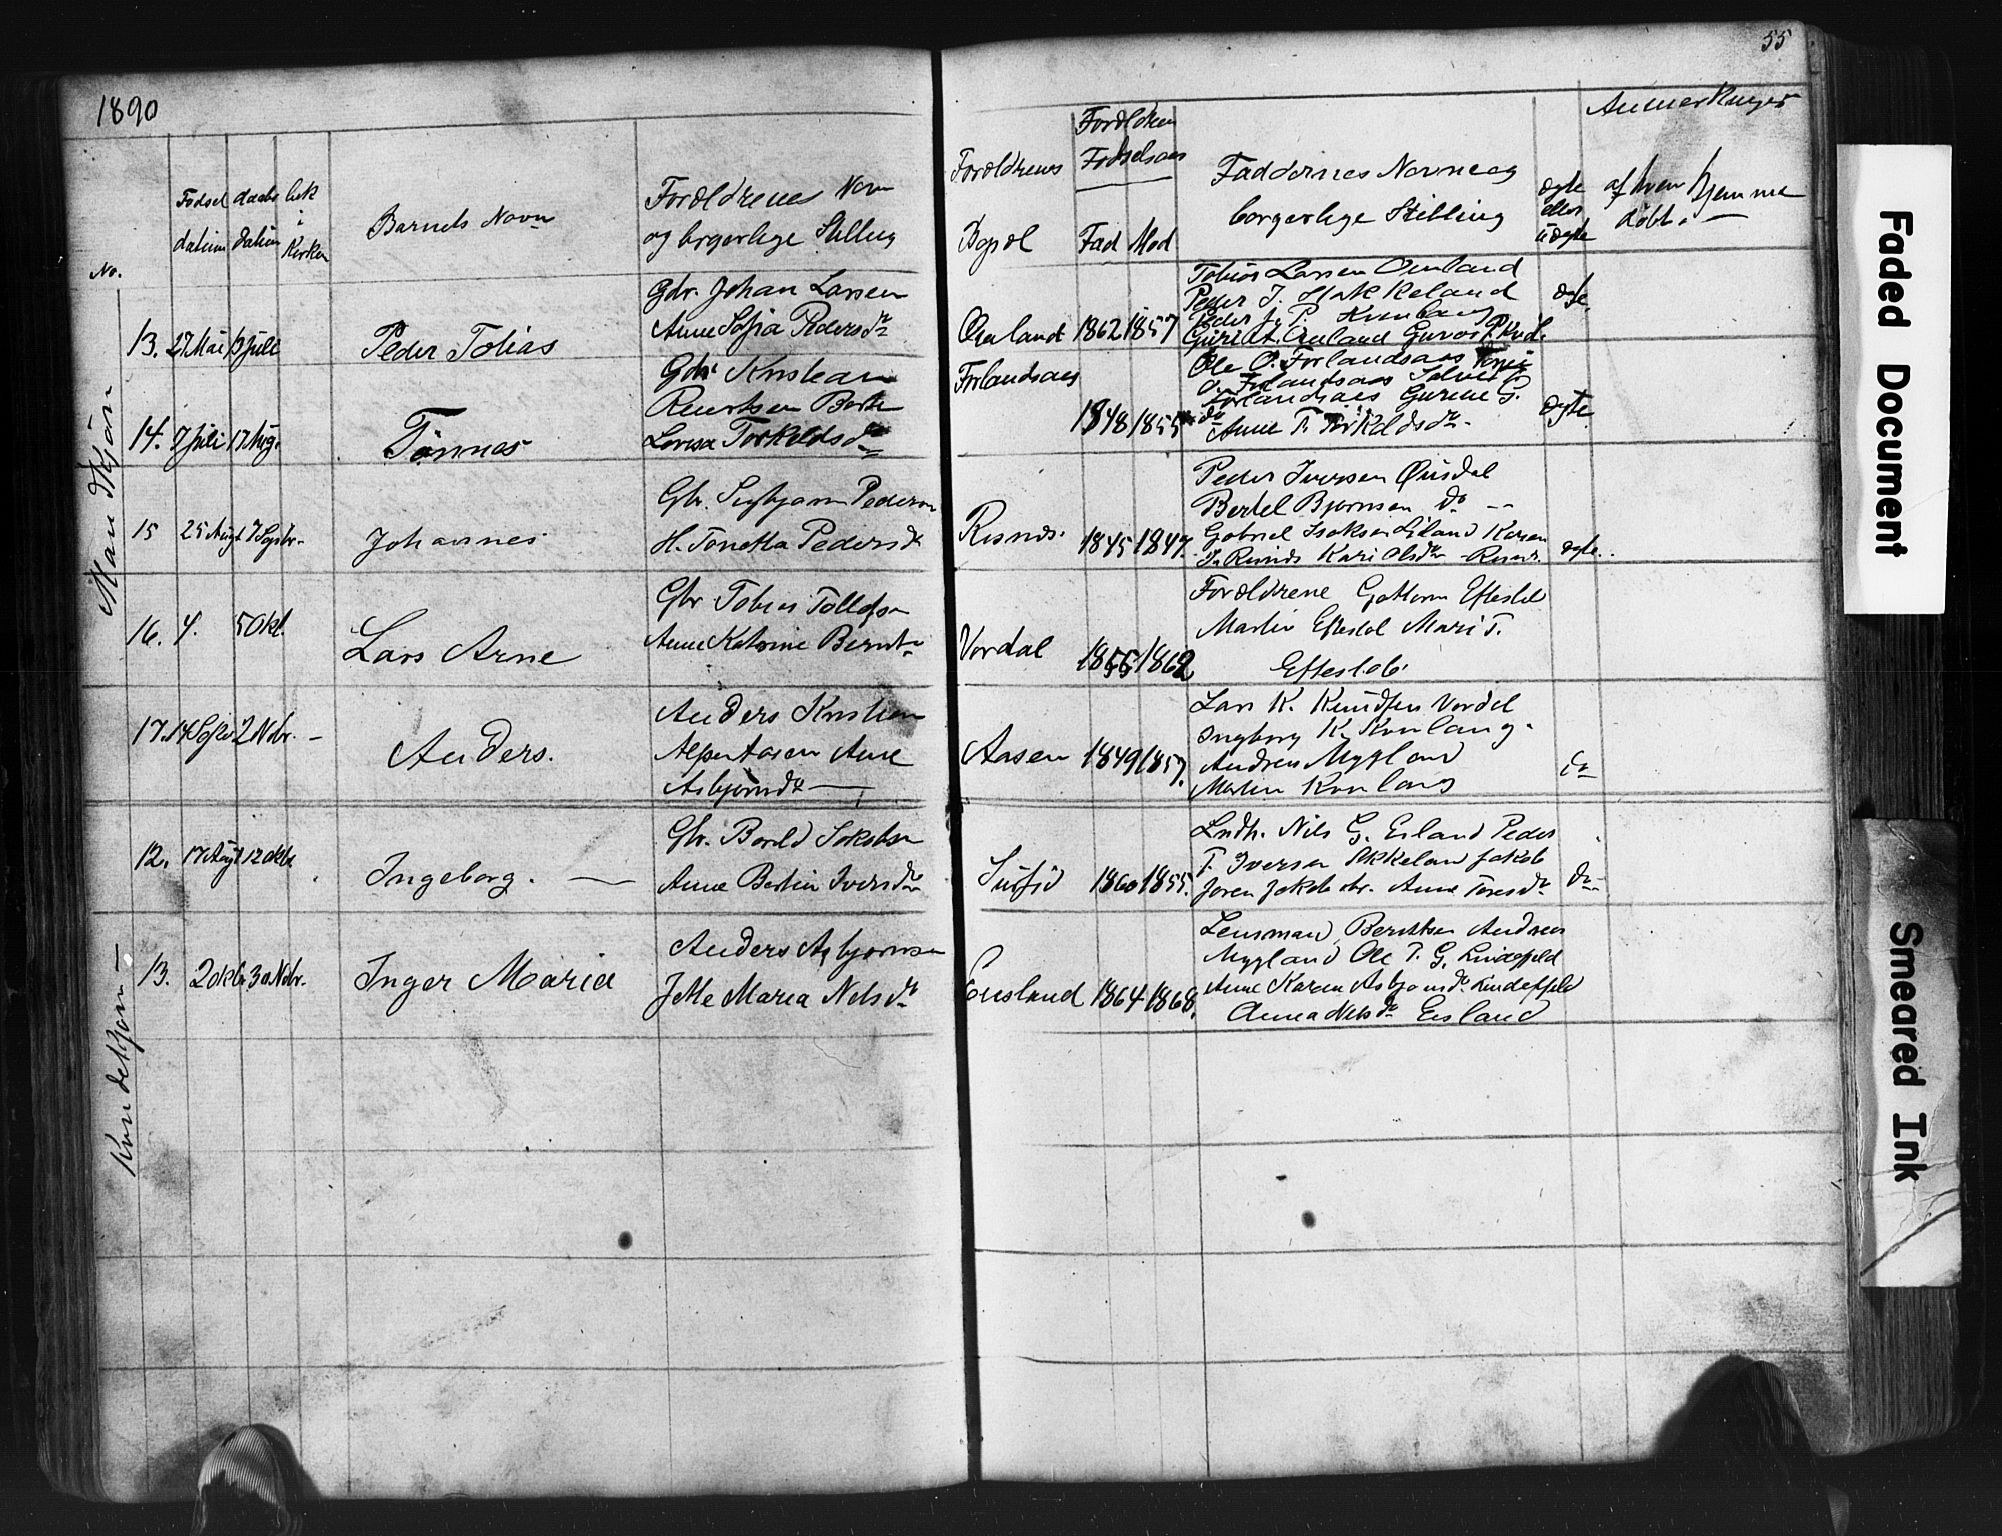 1890
55
No.
Fødsel datum
daabs datum
i Kirken
Barnets Navn
Forældrenes Navn
og borgerlige Stilling
Forældrenes
Bopæl
Forældrenes
Fødselsaar
Fad Mod
Faddernes Navne og
borgerlige Stilling
ægte
eller
uægte
Anmerkninger
af hvem hjemme
døbt. —
Mandkjøn
13. 27 Mai 13 Juli
Peder Tobias
Gdr. Johan Larsen
Anne Sofia Pedersdr
Omland 1862 1857
Tobias Larsen Omland
Peder
Peder J. P. Kvinlaug
Omland
ægte
14. 7 Juli 17 Aug.
Tønnes
Gdr Kristian
Reiertsen Berte
Lovisa Torkeldsdr
Forlandsaas
1848 1855
Ole O. Forlandsaas
O. Forlandsaas
Forlandsaas Gurine G.
do Anne T. Torkeldsdr.
ægte
15 25 Augt 7 Septbr-
Johannes
Gbr. Sigbjørn Pedersen
H. Tonetta Pedersdr
Risnes.
1845 1847.
Peder Iversen Øiesdal
Bertel Bjørnsen do --
Gabriel Isaksen Eiland Karen
J. Risnes Kari Olsdr Risnes.
ægte.
16. 4. 5 Okt.
Lars Arne
Gbr Tobias Tollefsen
Anne Katrine Bernt
Vordal
1855 1862
Forældrene Guttorm Eftestøl
Martin Eftestøl Mari T.
Eftestøl.
17. 14 Septbr 2 Nvbr. –
Anders.
Anders Kristian
Aasen Ane
Asbjørnsdr —
Aasen 1849 1857.
Lars K. Knudsen Vordal
Ingborg K. Kvinlaug.
Andreas Mygland
Martin Kvinlaug
do
Kvindekjøn —
12. 17 Augt 12 Oktbr
Ingeborg. —
Gbr. Bore­ld Jakobsen
Anne Bertine Iversdr
1860 1855.
Lndh. Nils G. Eisland Peder
T. Iversen Jakob
Anne Toresdr
do
13. 2 Oktbr 30 Nvbr.
Inger Maria
Anders Asbjørnsen
Jette Maria Nelsdr
Eiesland 1864 1868.
Lensmand Berntsen Andreas
Mygland Ole T. G. Lindefjeld
Anne Karen Asbjørnsdr. Lindefjeld
Anna Nelsdr Eisland
Faded Document
Smeared Ink